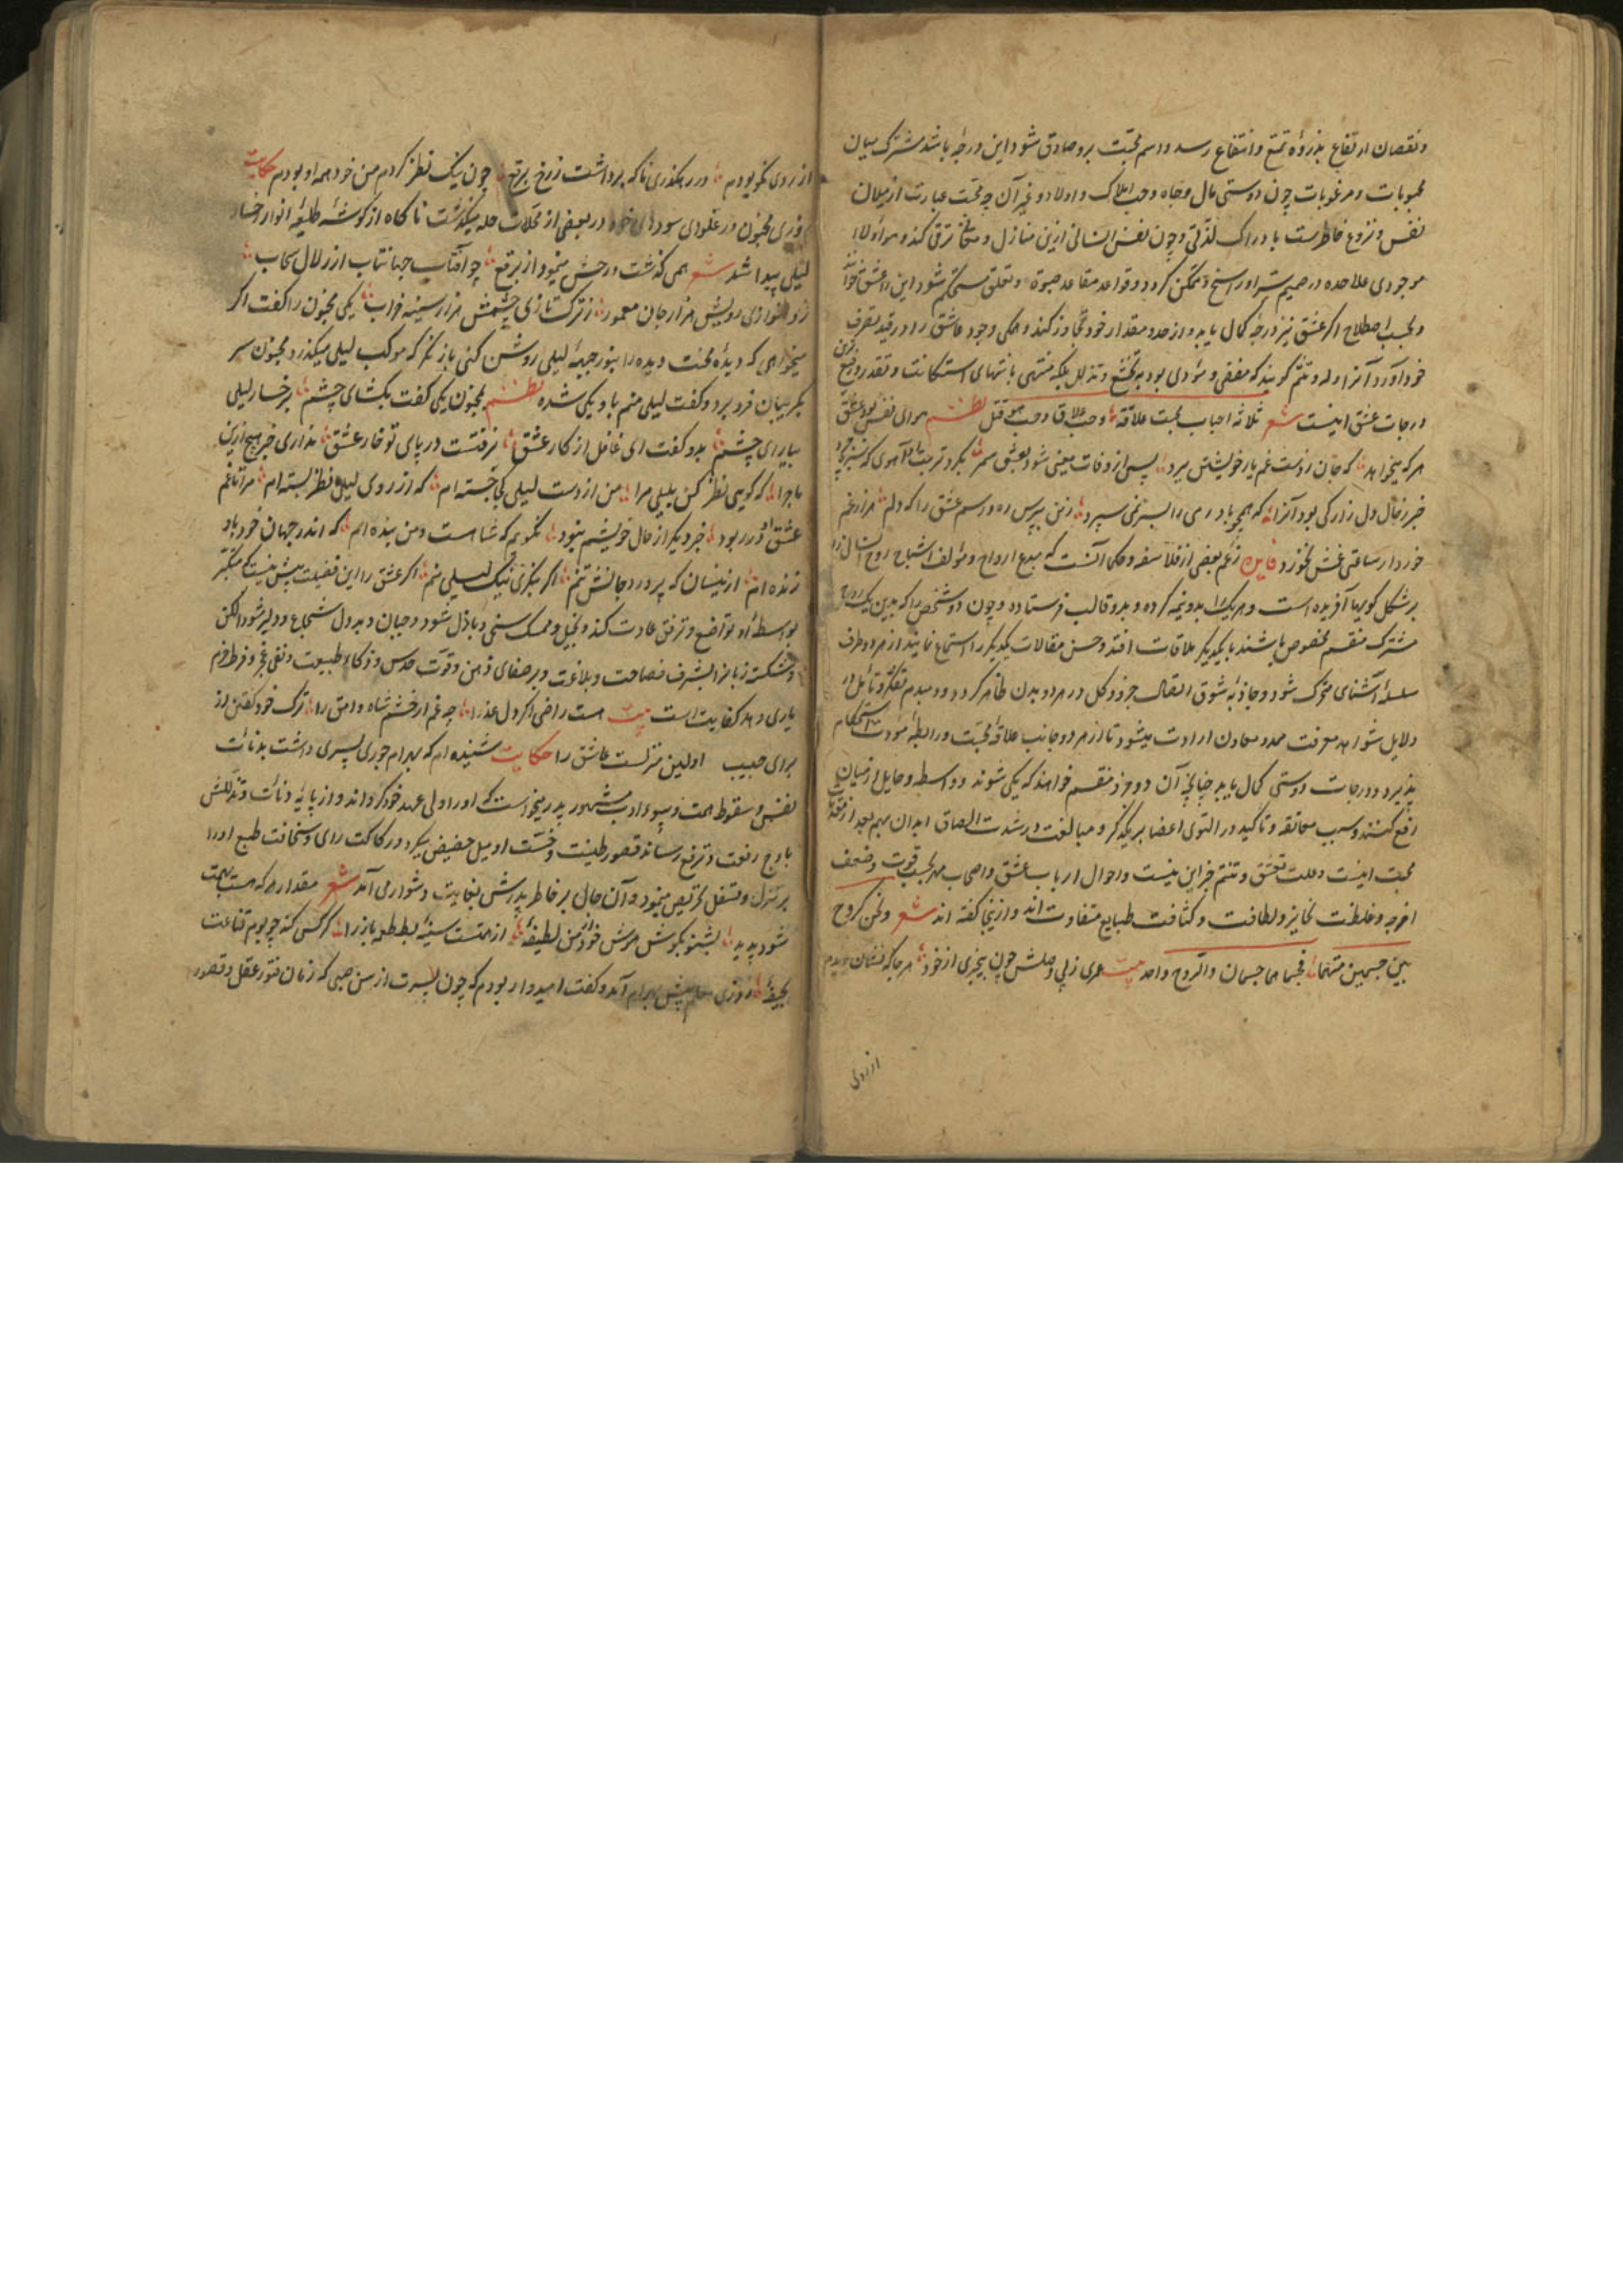 و نقصان ارتفاع بذروه تمتع و انتفاع رسد و اسم محبت برو صادق شود این درجه باشد مشترک میان
محبوبات و مرغوبات چون دوستی مال و جاه و حب املاک و اولاد و غیر آن چه محبت عبارت از میلان
نفس و نزوع خاطرست بادراک لذتی و چون نفس انسانی ازین منازل و ترقی کند و هوا و لا
موجودی علاحده در صمیم سر او راسخ و متمکن گردد و قواعد مقاعد صبوة و تعلق مستحکم شود این را عشق خوانند
و بحسب اصطلاح اگر عشق نیز درجه کمال یابد و از حد و مقدار خود تجاوز کند و همگی وجود عاشق را در قید تصرف
خود آورد آنرا وله و تیتم گویند که مفضی و مؤدی بود به تخشع و تذلل بلکه منتهی بانتهای استکانت و
درجات عشق اینست شعر ثلاثة احباب فحب علاقة وحب تملاق وحب هو قتل نظم هوای نفس بود عشق
هرکه میخواهد که جان ز دست غم یار خویشتن ببرد پس از وفات معنی شود بعشق سمر بگرد تربت
خبر ز حال دل زار کی بود آنرا که همچو باد رهی را بسر نمی سپرد ز من بپرس ره و رسم عشق را که دلم هزار غم
خورد ار ساعتی غمش نخورد فایده زعم بعضی از فلاسفه و حکما آنست که مبدع ارواح و مؤلف اشباح روح انسان را
بر شکل کویها آفریده است و هر یک را بدو نیمه کرده و بدو قالب فرستاده و چون دو شخص را که بدین یک روح
مشترک منقسم مخصوص باشند با یکدیگر ملاقات افتد و حسن مقالات یکدیگر را استماع نمایند از هر دو طرف
سلسله آشنای محرک شود و جاذبه شوق اتصال جزو و کل در هر دو بدن ظاهر گردد و دمبدم تفکر و تأمل در
دلایل شواهد معرفت ممد و معاون ارادت میشود تا از هر دو جانب علاقه محبت و رابطه مودت استحکام
پذیرد و درجات دوستی کمال یابد چنانچه آن دو جزو منقسم خواهند که یکی شوند و واسطه و حایل از میان
رفع کنند و سبب معانقه و تاکید در التوی اعضا بر یکدگر و مبالغت در شدت التصاق ابدان بهم بعد از
محبت اینست و علت تعشق و تیتم جز این نیست و احوال ارباب عشق و اصحاب مهر بحسب قوت و ضعف
امزجه و غلظت غرایز و لطافت و کثافت طبایع متفاوت اند و ازینجا گفته اند شعر ونحن کروح
بین جسمین منقسما فجسماهما جسمان والروح واحد بیت عمری ز پی وصلش چون بیخبری از خود هر جا که نشان دیدم
از روی
از روی نکو بودم در رهگذری ناگه برداشت ز رخ برقع چون نیک نظر کردم من خود همه او بودم حکایت
روزی مجنون در غلوای سودای خود در بعضی از محلات حله میگذشت ناگاه از گوشه طلیعه انوار رخسار
لیلی پیدا شد شعر همی گذشت و رخش مینمود از برقع چو آفتاب جهانتاب از زلال سحاب
ز دلنوازی رویش هزار جان معمور ز ترک تازی چشمش هزار سینه خراب یکی مجنون را گفت اگر
میخواهی که دیده محنت دیده را بنور جبهه لیلی روشن کنی باز نگر که موکب لیلی میگذرد مجنون سر
بگریبان فرو برد و گفت لیلی منم با و یکی شده نظم بمجنون یکی گفت بگشای چشم بر خسار لیلی
بیارای چشم بدو گفت ای غافل از کار عشق نرفتست در پای تو خار عشق نداری خبر هیچ ازین
ماجرا که گویی نظر کن بلیلی مرا من از دست لیلی کجا جسته ام که از روی لیلی نظر بسته ام مرا تا غم
عشق او در ربود خبر دیگر از حال خویشم نبود نگویم که شاهست و من بنده ام که اندر جهان خود باو
زنده ام ازینسان که پرورد جانش تنم اگر بنگری نیک لیلی منم اگر عشق را این فضیلت بیش نیست که متکبر
بواسطه او بتواضع و ترفق عادت کند و بخیل و ممسک سخی و باذل شود و جبان و بددل شجاع و دلیر شود الکن
و شکسته زبان را بشرف فصاحت و بلاغت و بر صفای ذهن و قوت حدس و ذکاء طبیعت و نفی عجز و فرط حزم
یاری دهد کفایت است بیت هست راضی اگر دل عذرا چه غم از خشم شاه وامق را ترک خود گفتن از
برای حبیب اولین منزلست عاشق را حکایت شنیده ام که بهرام جوری پسری داشت بدنائت
نفس و سقوط همت و بسوء ادب مشهور پدر میخواست که او را ولی عهد خود گرداند و از پایه دنائت و تذللش
باوج رفعت و ترفع رساند قصور طینت و خست او میل حضیض میکرد و رکاکت رای و سخافت طبع او را
بر تنزل و تسفل تحریص مینمود و آن حال بر خاطر پدرش بغایت دشوار می آمد شعر مقدار هر که هست بهمت
شود پدید بشنو بگوش هوش خود از من لطیفه از همتست سینه بط طعمه باز را کرکس کند چو بوم قناعت
بجیفه روزی معلم پیش بهرام آمد و گفت امیدوار بودم که چون پسرت از سن صبی که زمان فتور عقل و قصور